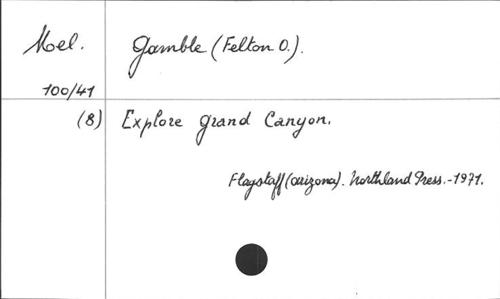 Moel. Gamble (Felton O.).
100/41
(8) Explore grand Canyon.
Flagstaff (arizona). Northland Press. - 1971.